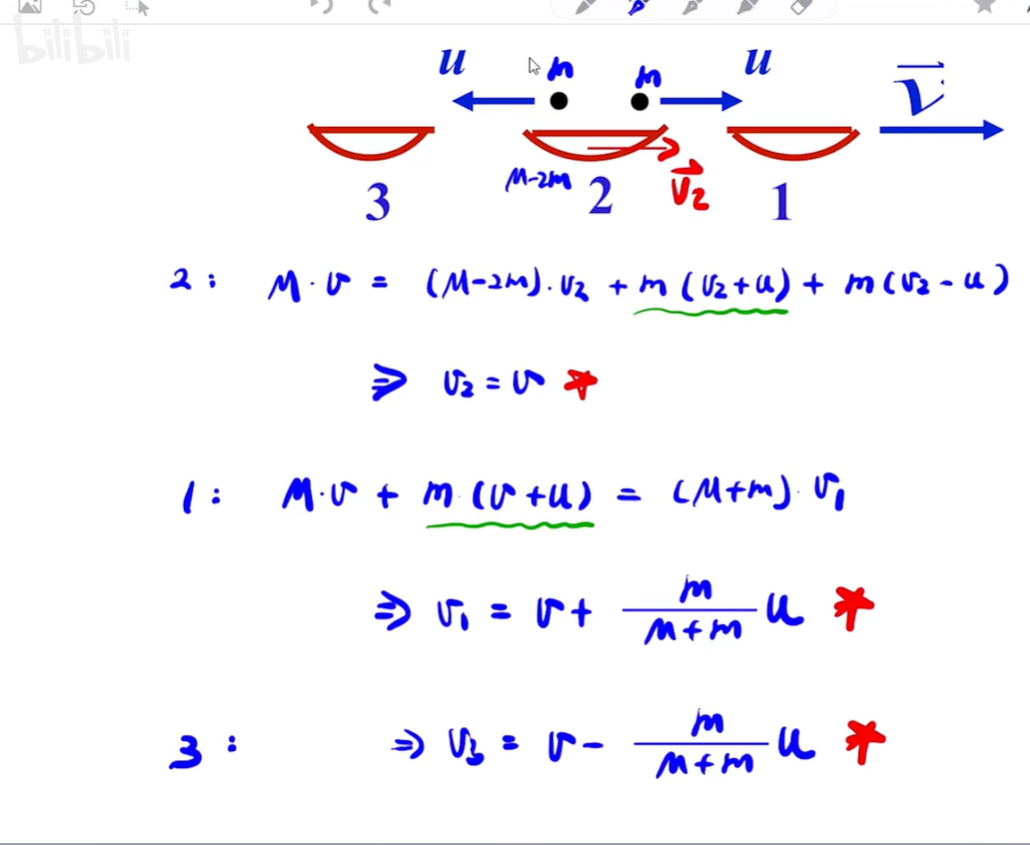 bilibili
u m m u V⃗
M-2m V⃗2
3 2 1
2: M·v = (M-2m)·v₂ + m(v₂+u) + m(v₂-u)
⇒ v₂ = v *
1: M·v + m·(v+u) = (M+m)·v₁
⇒ v₁ = v + m/(M+m) u *
3: ⇒ v₃ = v - m/(M+m) u *